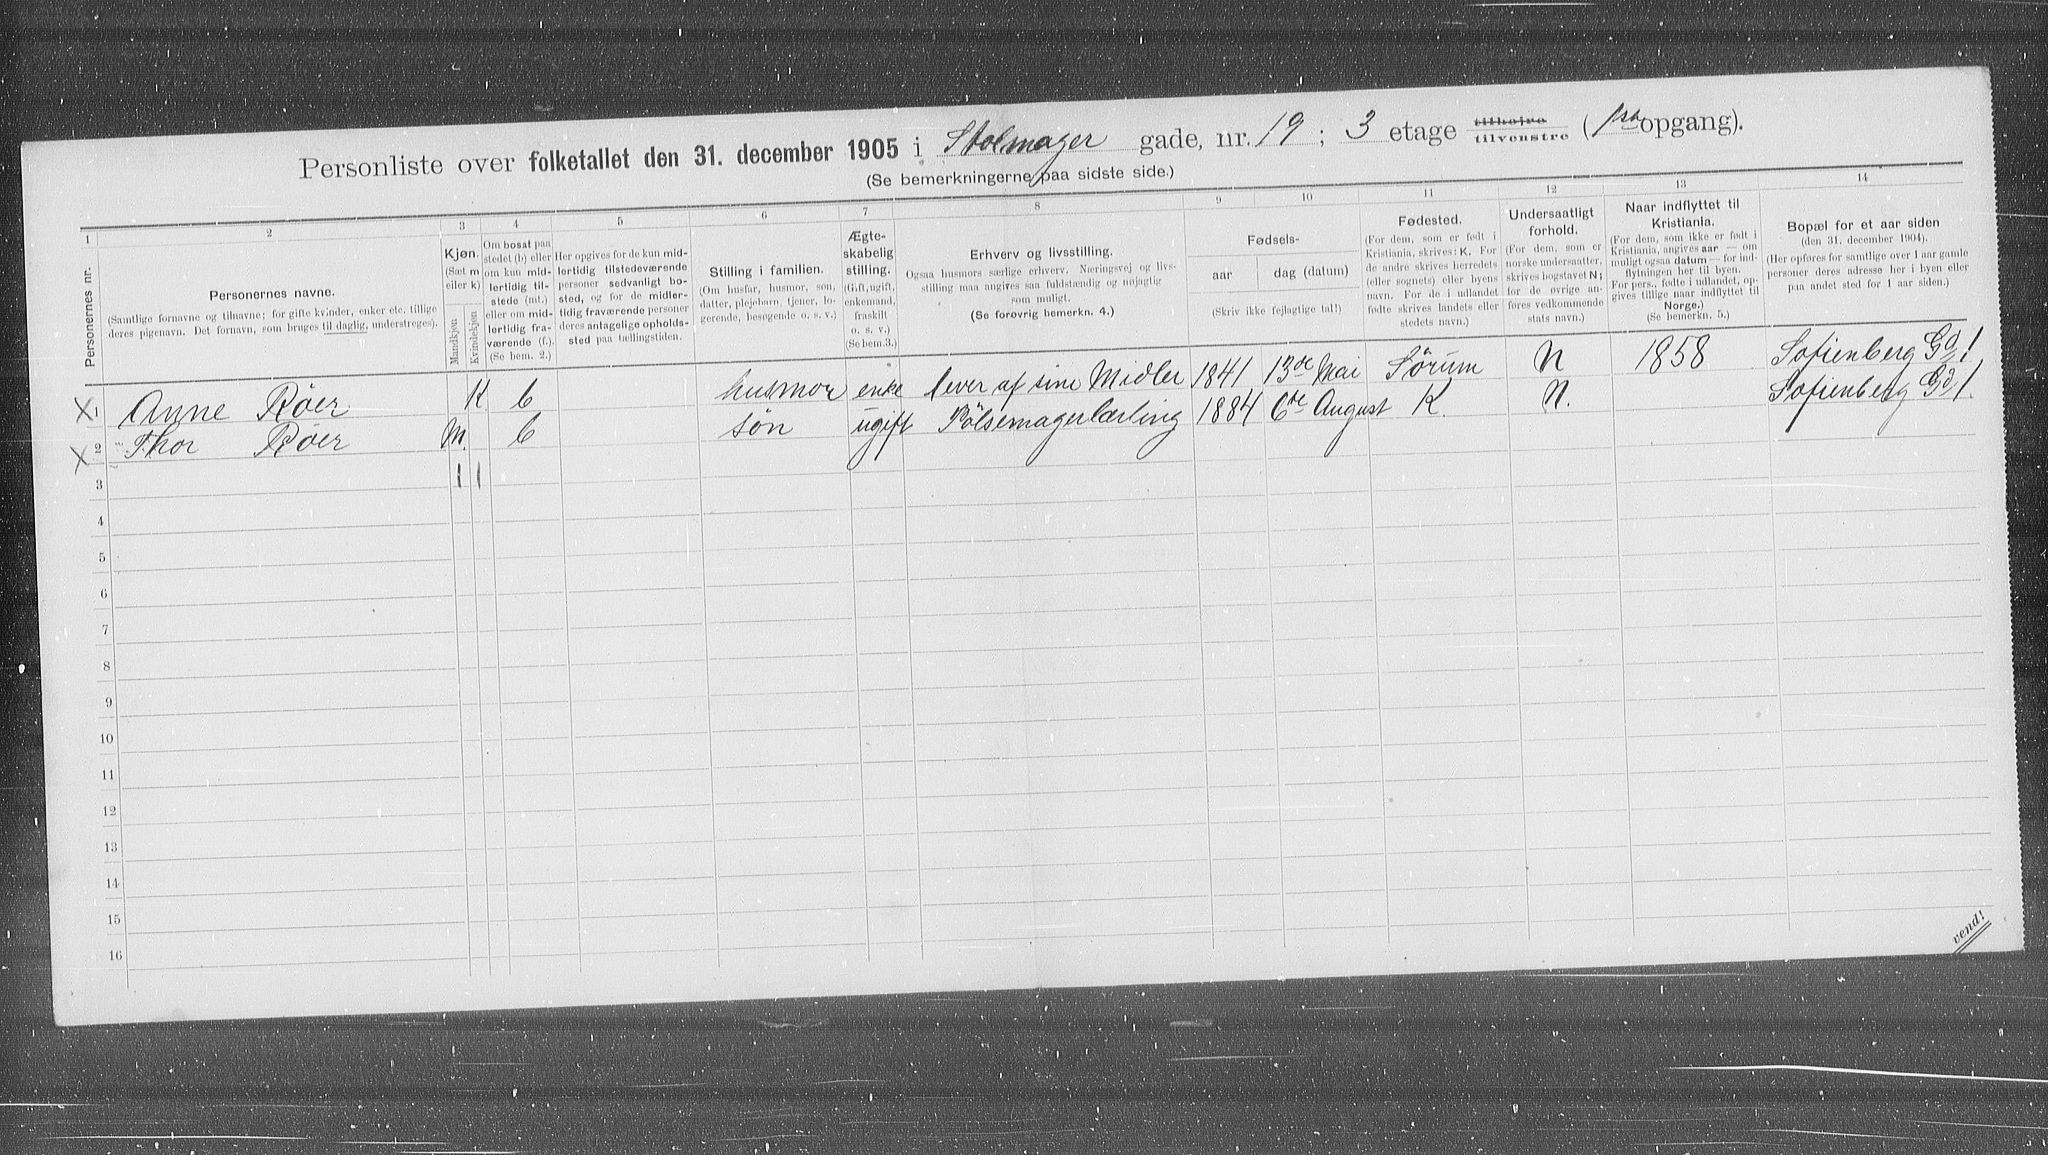 Personliste over folketallet den 31. december 1905 i Stolmager gade, nr. 19 ; 3 etage tilhøire tilvenstre ( 1ste opgang).
(Se bemerkningerne paa sidste side.)
1 2 3 4 5 6 7 8 9 10 11 12 13 14
Personernes nr.
Personernes navne.
(Samtlige fornavne og tilnavne; for gifte kvinder, enker etc. tillige
deres pigenavn. Det fornavn, som bruges til daglig, understreges).
Kjøn.
(Sæt m
eller k)
Mandkjøn
Kvindekjøn
Om bosat paa
stedet (b) eller
om kun mid-
lertidig til-
stede (mt.)
eller om mid-
lertidig fra-
værende (f.).
(Se bem. 2.)
Her opgives for de kun mid-
lertidig tilstedeværende
personer sedvanligt bo-
sted, og for de midler-
tidig fraværende personer
deres antagelige opholds-
sted paa tællingstiden.
Stilling i familien.
(Om husfar, husmor, søn,
datter, plejebarn, tjener, lo-
gerende, besøgende o. s. v.)
Ægte-
skabelig
stilling.
(Gift, ugift,
enkemand,
fraskilt
o. s. v.)
(Se bem.3.)
Erhverv og livsstilling.
Ogsaa husmors særlige erhverv. Næringsvej og livs-
stilling maa angives saa fuldstændig og nøjagtig
som muligt.
(Se forøvrig bemerkn. 4.)
Fødsels-
aar
dag (datum)
(Skriv ikke fejlagtige tal!)
Fødested.
(For dem, som er født i
Kristiania, skrives: K. For
de andre skrives herredets
(eller sognets) eller byens
navn. For de i udlandet
fødte skrives landets eller
stedets navn.)
Undersaatligt
forhold.
(For dem, som er
norske undersaatter,
skrives bogstavet N;
for de øvrige an-
føres vedkommende
stats navn.)
Naar indflyttet til
Kristiania.
(For dem, som ikke er født i
Kristiania, angives aar — om
muligt ogsaa datum — for ind-
flytningen her til byen.
For pers., fødte i udlandet, op-
gives tillige naar indflyttet til
Norge.)
(Se bemerkn. 5.)
Bopæl for et aar siden
(den 31. december 1904).
(Her opføres for samtlige over 1 aar gamle
personer deres adresse her i byen eller
paa andet sted for 1 aar siden.)
X 1 Anne Röer K b husmor enke lever af sine Midler 1841 13de Mai Sörum N 1858 Sofienberg Gd 1
X 2 Thor Röer M. b søn ugift Pölsemagerlærling 1884 6te August K. N. Sofienberg Gd 1.
3 1 1
4
5
6
7
8
9
10
11
12
13
14
15
16
vend!